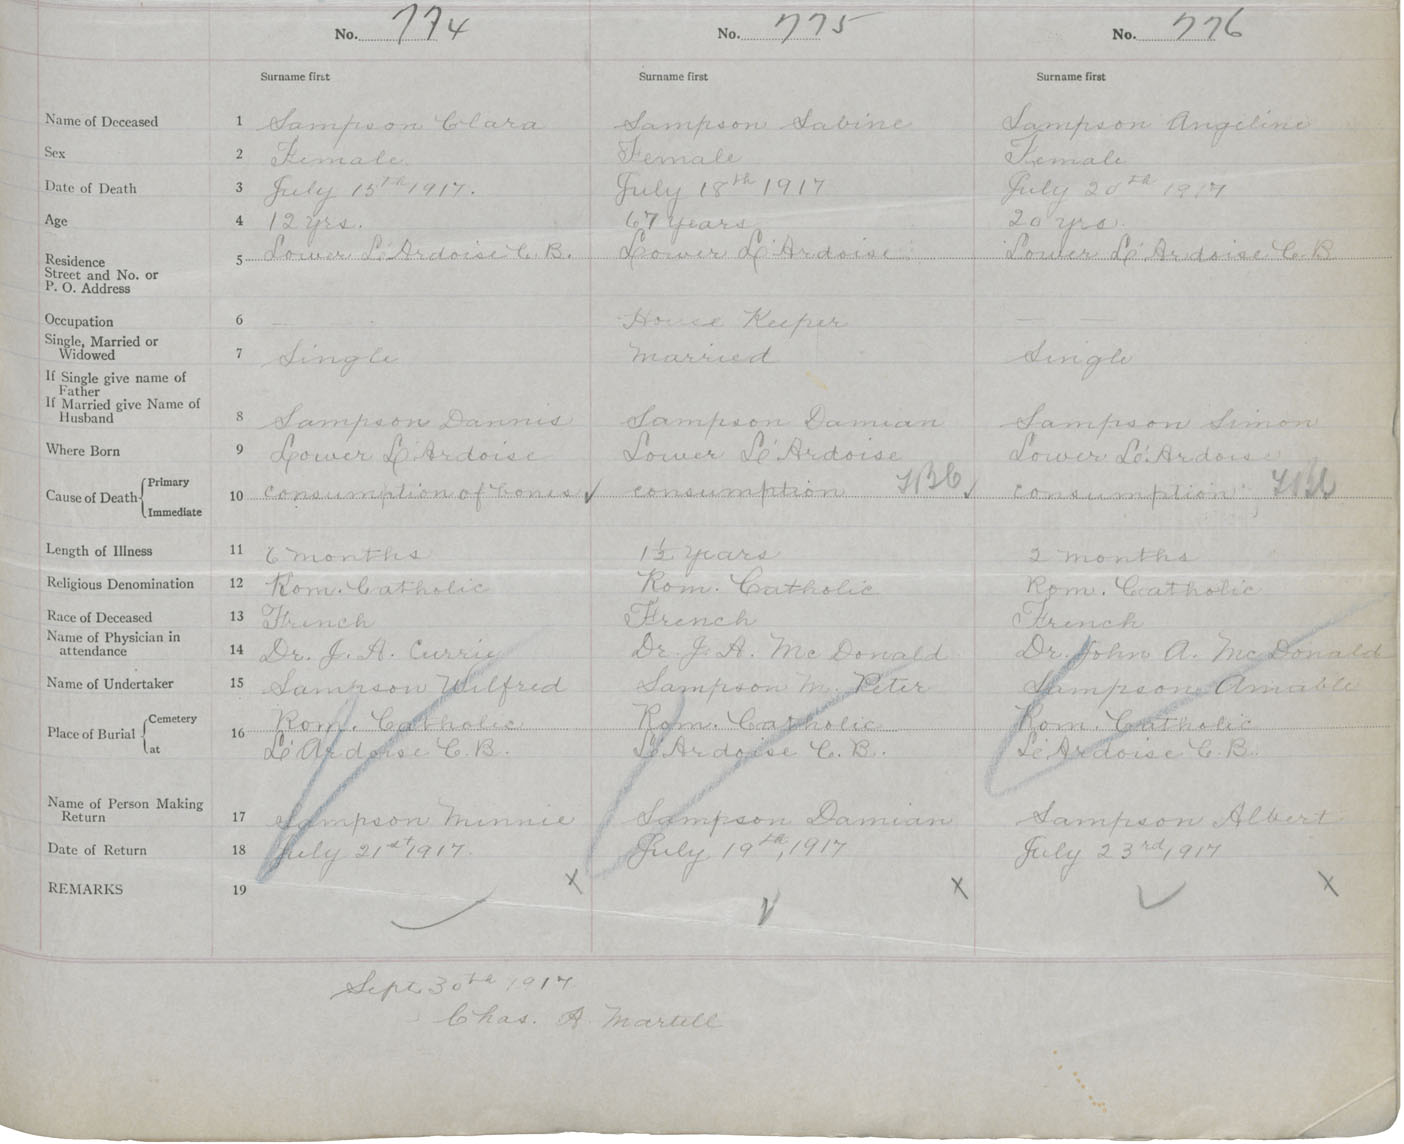 No. 774 No. 775 No. 776
Surname first Surname first Surname first
Name of Deceased 1 Sampson Clara Sampson Sabine Sampson Angeline
Sex 2 Female Female Female
Date of Death 3 July 15th 1917. July 18th 1917 July 20th 1917
Age 4 12 yrs. 67 years 20 yrs.
Residence
Street and No. or
P. O. Address
5 Lower L'Ardoise C.B. Lower L'Ardoise Lower L'Ardoise C.B
Occupation 6 — House Keeper —
Single, Married or
Widowed 7 Single Married Single
If Single give name of
Father
If Married give Name of
Husband 8 Sampson Dannis Sampson Damian Sampson Simon
Where Born 9 Lower L'Ardoise Lower L'Ardoise Lower L'Ardoise
Cause of Death Primary
Immediate
10 consumption of bones consumption consumption
Length of Illness 11 6 months 1½ years 2 months
Religious Denomination 12 Rom. Catholic Rom. Catholic Rom. Catholic
Race of Deceased 13 French French French
Name of Physician in
attendance 14 Dr. J. A. Currie Dr. J. A. McDonald Dr. John A. McDonald
Name of Undertaker 15 Sampson Wilfred Sampson M. Peter Sampson Amable
Place of Burial Cemetery
at
16 Rom. Catholic Rom. Catholic Rom. Catholic
L'Ardoise C.B. L'Ardoise C.B. L'Ardoise C.B.
Name of Person Making
Return 17 Sampson Minnie Sampson Damian Sampson Albert
Date of Return 18 July 21st 1917. July 19th, 1917 July 23rd, 1917
REMARKS 19 x x x
Sept 30th 1917
Chas. A Martell